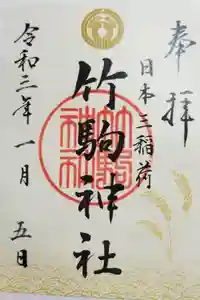 奉拝
日本三稲荷
竹駒神社
令和三年一月五日
竹駒神社